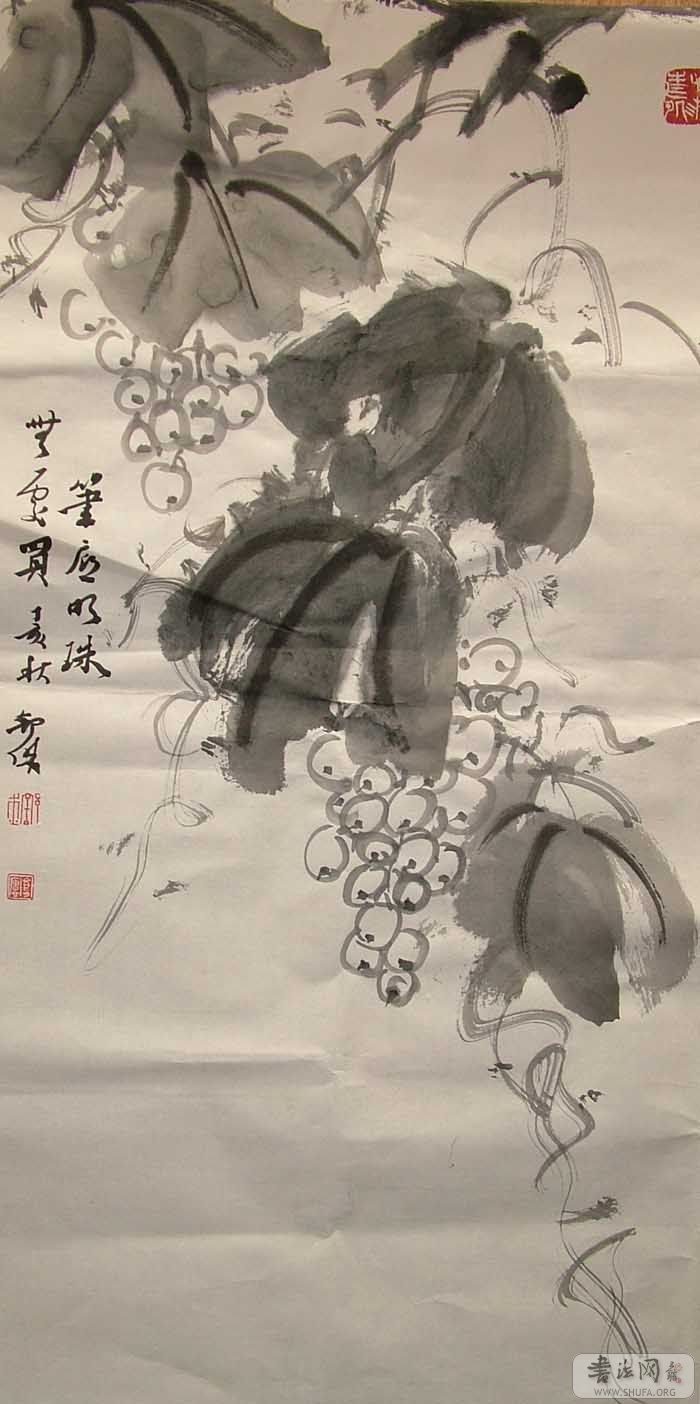 筆底明珠
無處買 亥秋
書法网
WWW.SHUFA.ORG